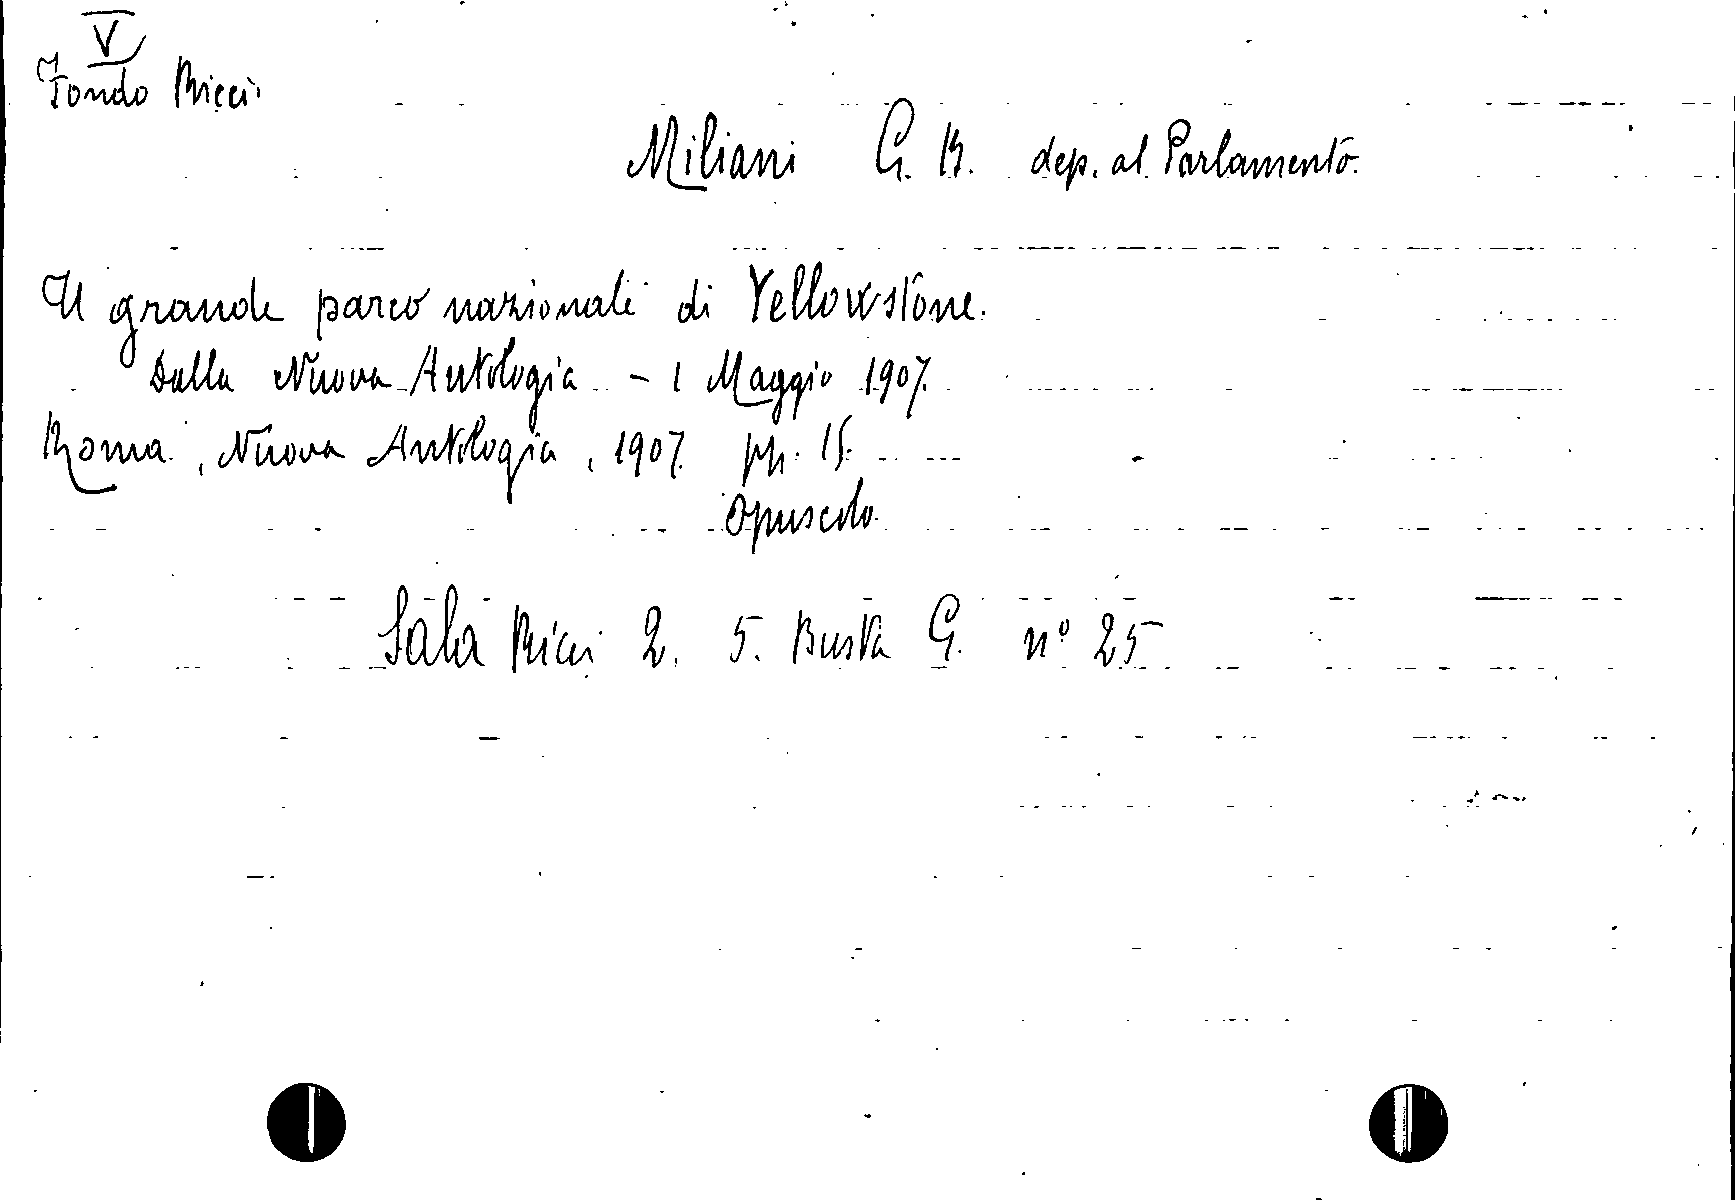 V
Fondo Ricci
Miliani G. B. dep. al Parlamento.
Il grande parco nazionale di Yellowstone.
Dalla Nuova Antologia - 1 Maggio 1907.
Roma, Nuova Antologia, 1907. pp. 15.
Opuscolo
Sala Ricci 2. 5. Busta G. n° 25